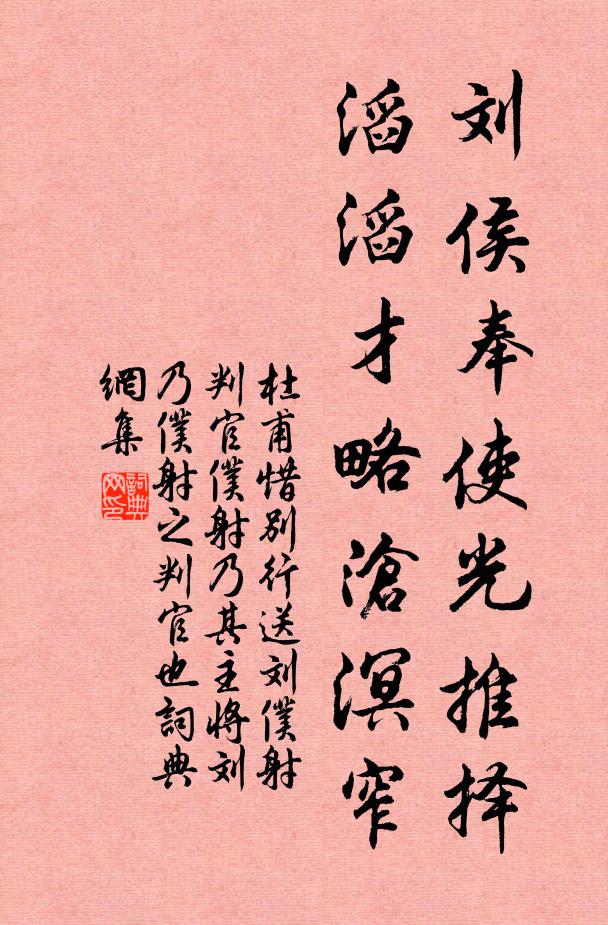 刘侯奉使光推择
滔滔才略滄溟窄
杜甫惜别行送刘僕射
判官僕射乃其主將刘
乃僕射之判官也詞典
網集
詞典网印